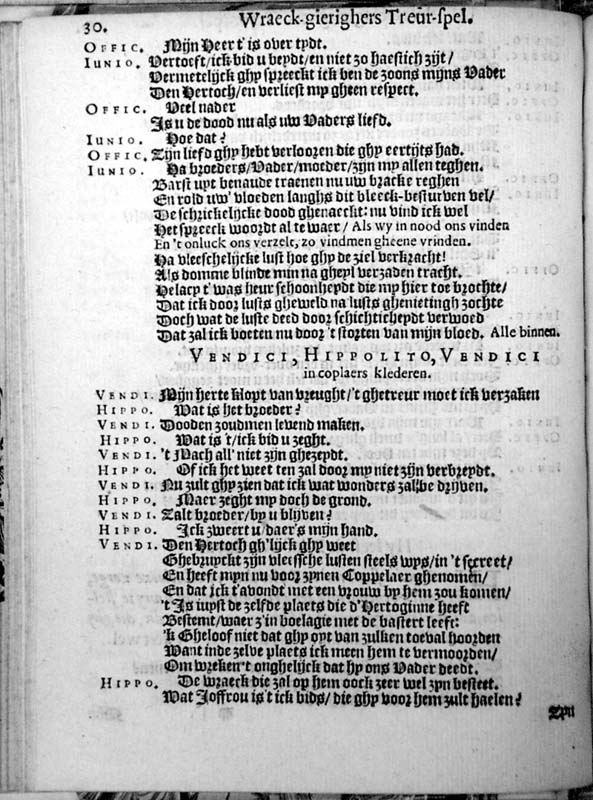 30. Wraeck-gierighers Treur-spel.
OFFIC. Mijn Heer t' is over tydt.
IUNIO. Vertoeft/ick bid u beydt/en niet zo haestich zijt/
Vermetelyck ghy spreeckt ick ben de zoons mijns Vader
Den Hertoch/en verliest my gheen respect.
OFFIC. Veel nader
Is u de dood nu als uw Vaders liefd.
IUNIO. Hoe dat?
OFFIC. Zijn liefd ghy hebt verlooren die ghy eertijts had.
IUNIO. Ha broeders/Vader/moeder/zijn my allen teghen.
Barst uyt benaude traenen nu uw bracke reghen
En rold uw' vloeden langhs dit bleeck-besturven vel/
De schrickelijcke dood ghenaeckt: nu vind ick wel
Het spreeck woordt al te waer/ Als wy in nood ons vinden
En 't onluck ons verzelt, zo vindmen gheene vrinden.
Ha vleeschelijcke lust hoe ghy de ziel verkracht!
Als domme blinde min na gheyl verzaden tracht.
Helacy t' was heur schoonheydt die my hier toe brochte/
Dat ick door lusts gheweld na lusts ghenietingh zochte
Doch wat de luste deed door schichticheydt verwoed
Dat zal ick boeten nu door 't storten van mijn bloed. Alle binnen.
VENDICI, HIPPOLITO, VENDICI
in coplaers klederen.
VENDI. Mijn herte klopt van vreught/'t ghetreur moet ick verzaken
HIPPO. Wat is het broeder?
VENDI. Dooden zoudmen levend maken.
HIPPO. Wat is 't/ick bid u zeght.
VENDI. 't Mach all' niet zijn ghezeydt.
HIPPO. Of ick het weet ten zal door my niet zijn verbreydt.
VENDI. Nu zult ghy zien dat ick wat wonders zal be dryven.
HIPPO. Maer zeght my doch de grond.
VENDI. Zalt broeder/by u blyven?
HIPPO. Ick zweert u/daer's mijn hand.
VENDI. Den Hertoch gh'lijck ghy weet
Ghebruyckt zijn vleessche lusten steels wys/in 't secreet/
En heeft myn nu voor zynen Coppelaer ghenomen/
En dat ick t'avondt met een vrouw by hem zou komen/
't Is iuyst de zelfde plaets die d'Hertoginne heeft
Bestemt/waer z'in boelagie met de bastert leeft:
'k Gheloof niet dat ghy oyt van zulken toeval hoorden
Want inde zelve plaets ick meen hem te vermoorden/
Om wreken 't onghelijck dat hy ons Vader deedt.
HIPPO. De wraeck die zal op hem oock zeer wel zyn besteet.
Wat Joffrou is 't ick bids/ die ghy voor hem zult haelen?
Zyn